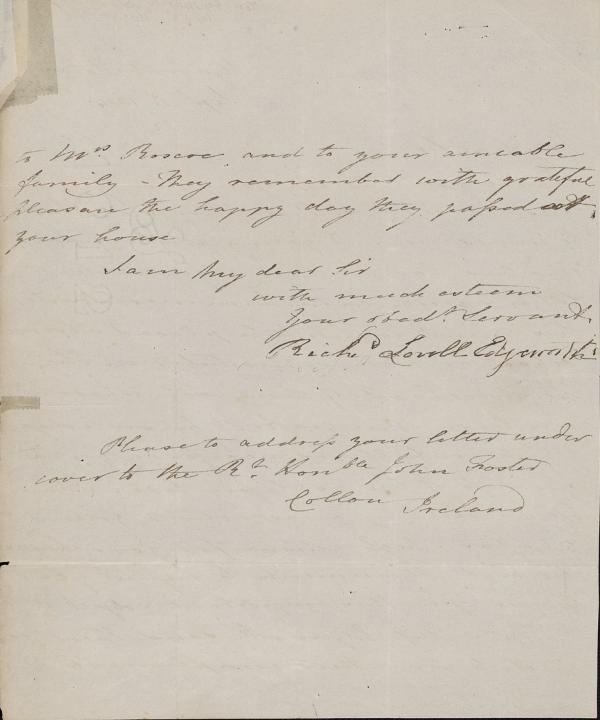 to Mrs. Roscoe, and to your amiable
family - They remember with grateful
pleasure the happy day they passed at
your house
I am My dear Sir
with much esteem
Your obedt. Servant,
Richd Lovell Edgeworth
Please to address your letter under
cover to the Rt. Honble John Foster
Collon Ireland